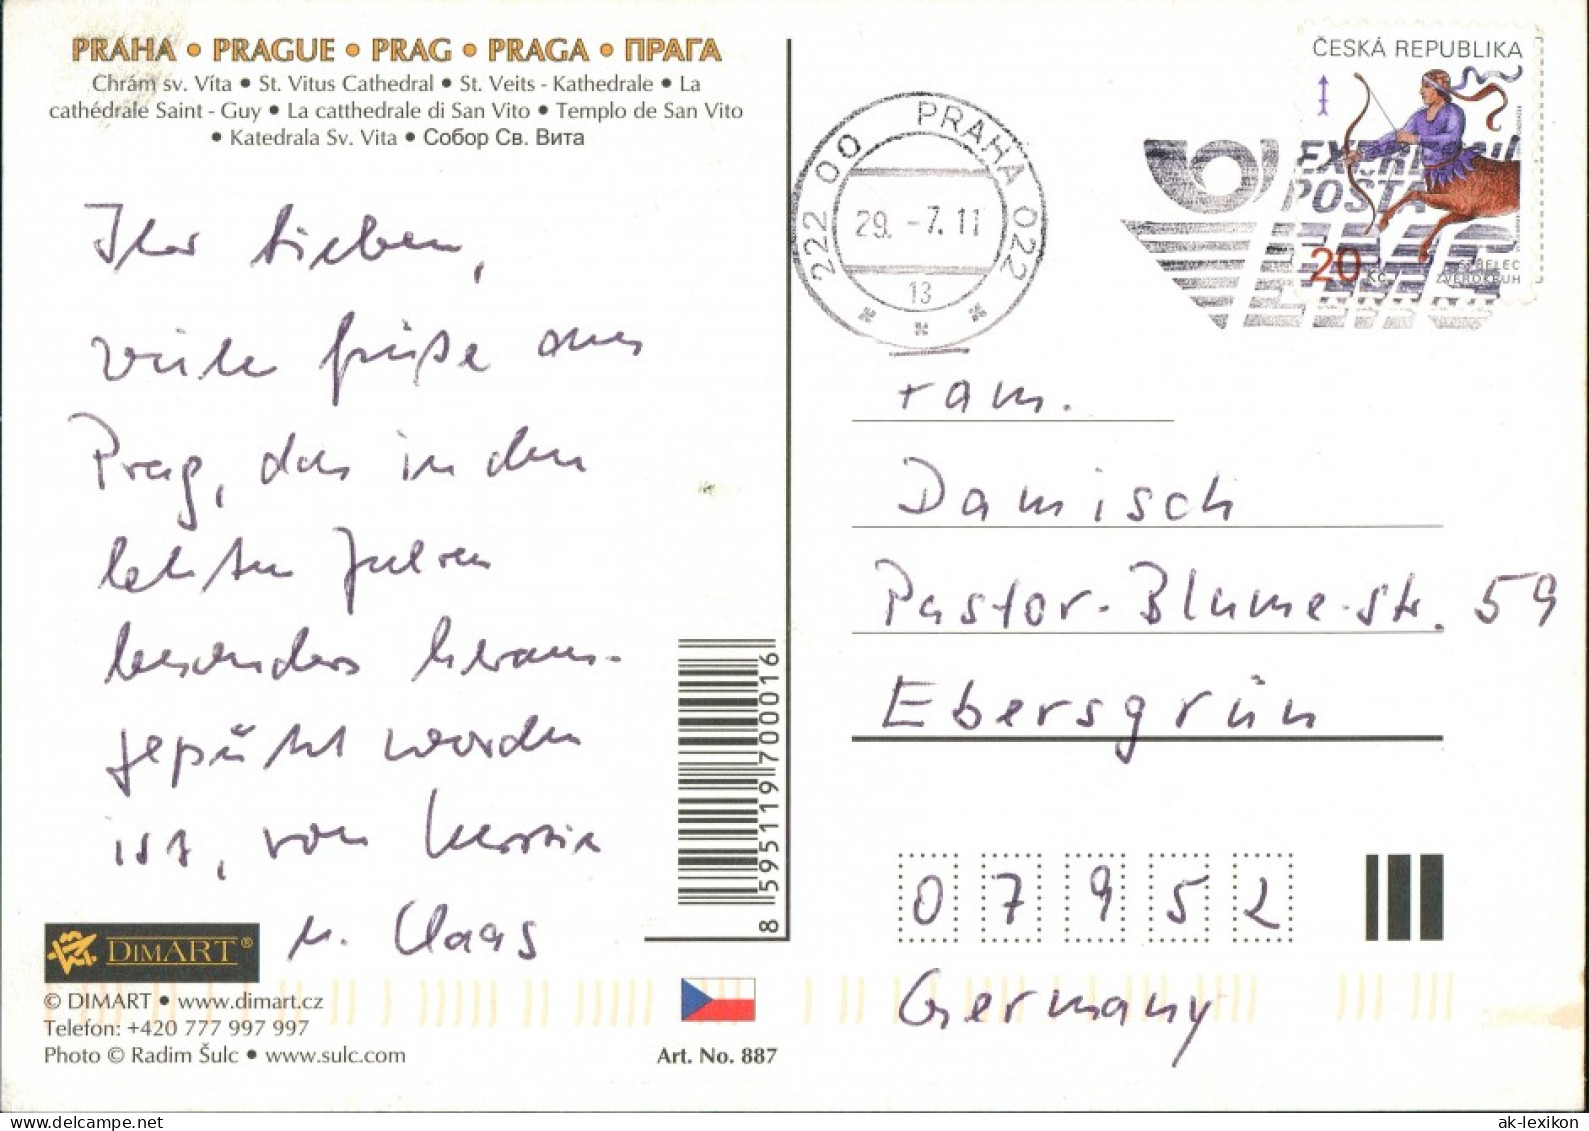 PRAHA • PRAGUE • PRAG • PRAGA • ПРАГА
Chrám sv. Víta • St. Vitus Cathedral • St. Veits - Kathedrale • La
cathédrale Saint - Guy • La catthedrale di San Vito • Templo de San Vito
• Katedrala Sv. Vita • Собор Св. Вита
Ihr Lieben,
viele Grüße aus
Prag, das in den
letzten Jahren
besonders heraus-
geputzt worden
ist, von
u. Claas
DIMART®
© DIMART • www.dimart.cz
Telefon: +420 777 997 997
Photo © Radim Šulc • www.sulc.com
Art. No. 887
8595119700016
222 00 PRAHA 022
29. -7. 11
13
ČESKÁ REPUBLIKA
POŠTA
EMS
20 Kč
STŘELEC
ZVĚROKRUH
Fam.
Damisch
Pastor-Blume-str. 59
Ebersgrün
07952
Germany
ak-lexikon